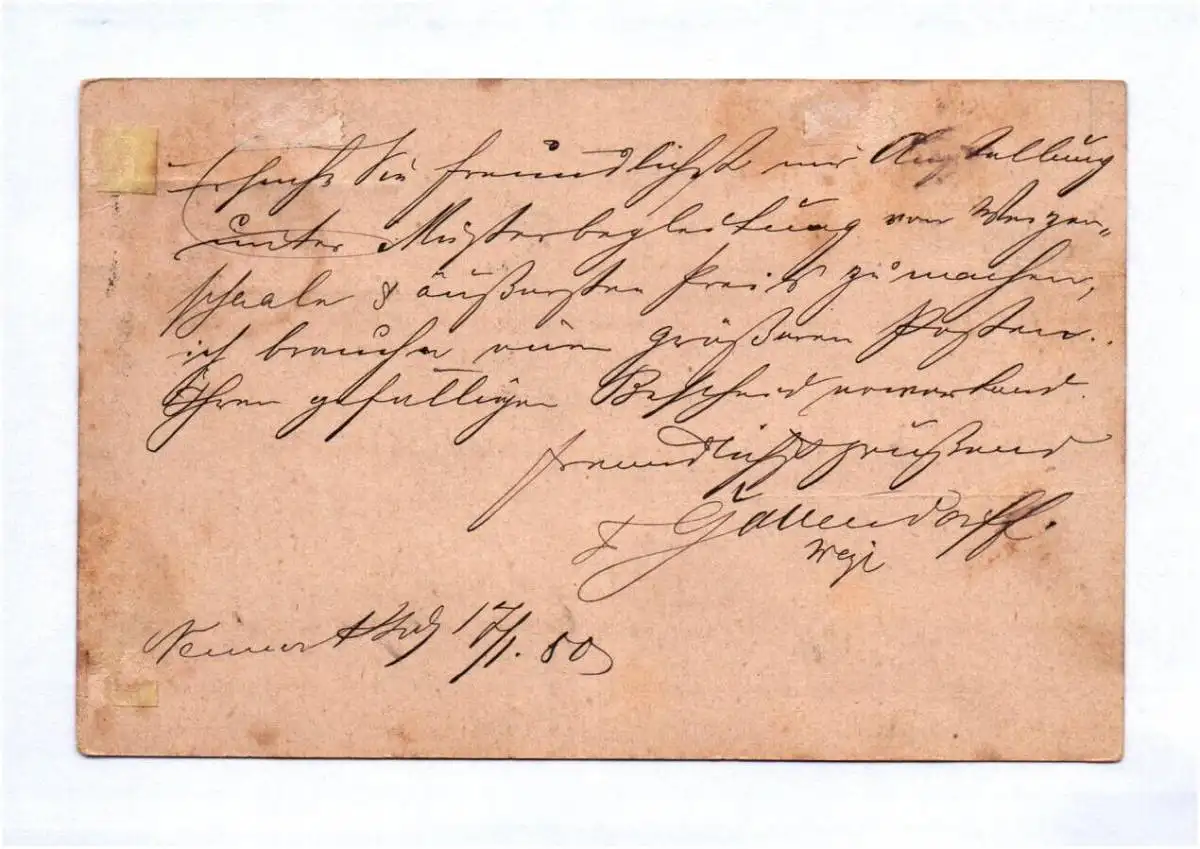 Ersuche Sie freundlichst mir Anstellung
unter Musterbegleitung von Weizen-
schaale & äußersten Preis zu machen,
ich brauche einen größeren Posten.
Ihren gefälligen Bescheid erwartend.
freundlichst grüßend
17/1. 80